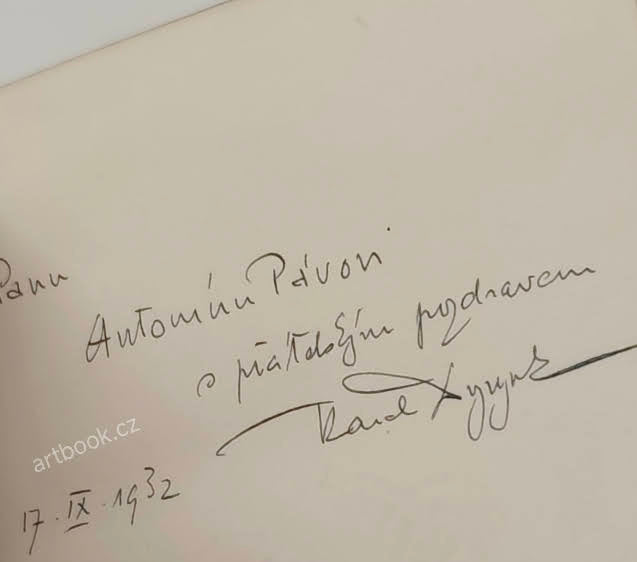 Panu
Antonínu Pávovi
s přátelským pozdravem
Karel Dyrynk
artbook.cz
17. IX. 1932